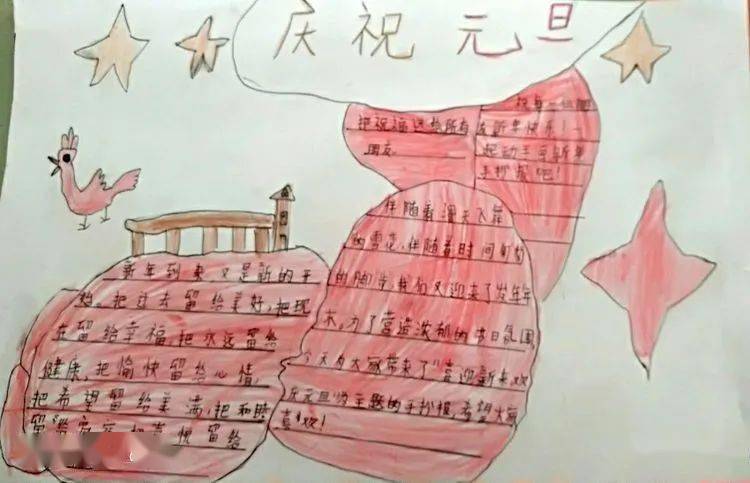 庆祝元旦
祝每一位朋
把祝福送给所有
友新年快乐!一
朋友
起动手写新年
手抄报吧!
伴随着漫天飞舞
的雪花,伴随着时间匆匆
的脚步,我们又迎来了
末,为了营造浓郁的节日氛围
今天为大家带来了"喜迎新来欢
庆元旦为主题的手抄报,希望大家
喜欢!
新年到来又是新的开
始,把过去留给美好,把现
在留给幸福,把永远留给
健康,把愉快留给心情,
把希望留给美满,把和睦
留给家庭,把喜悦留给